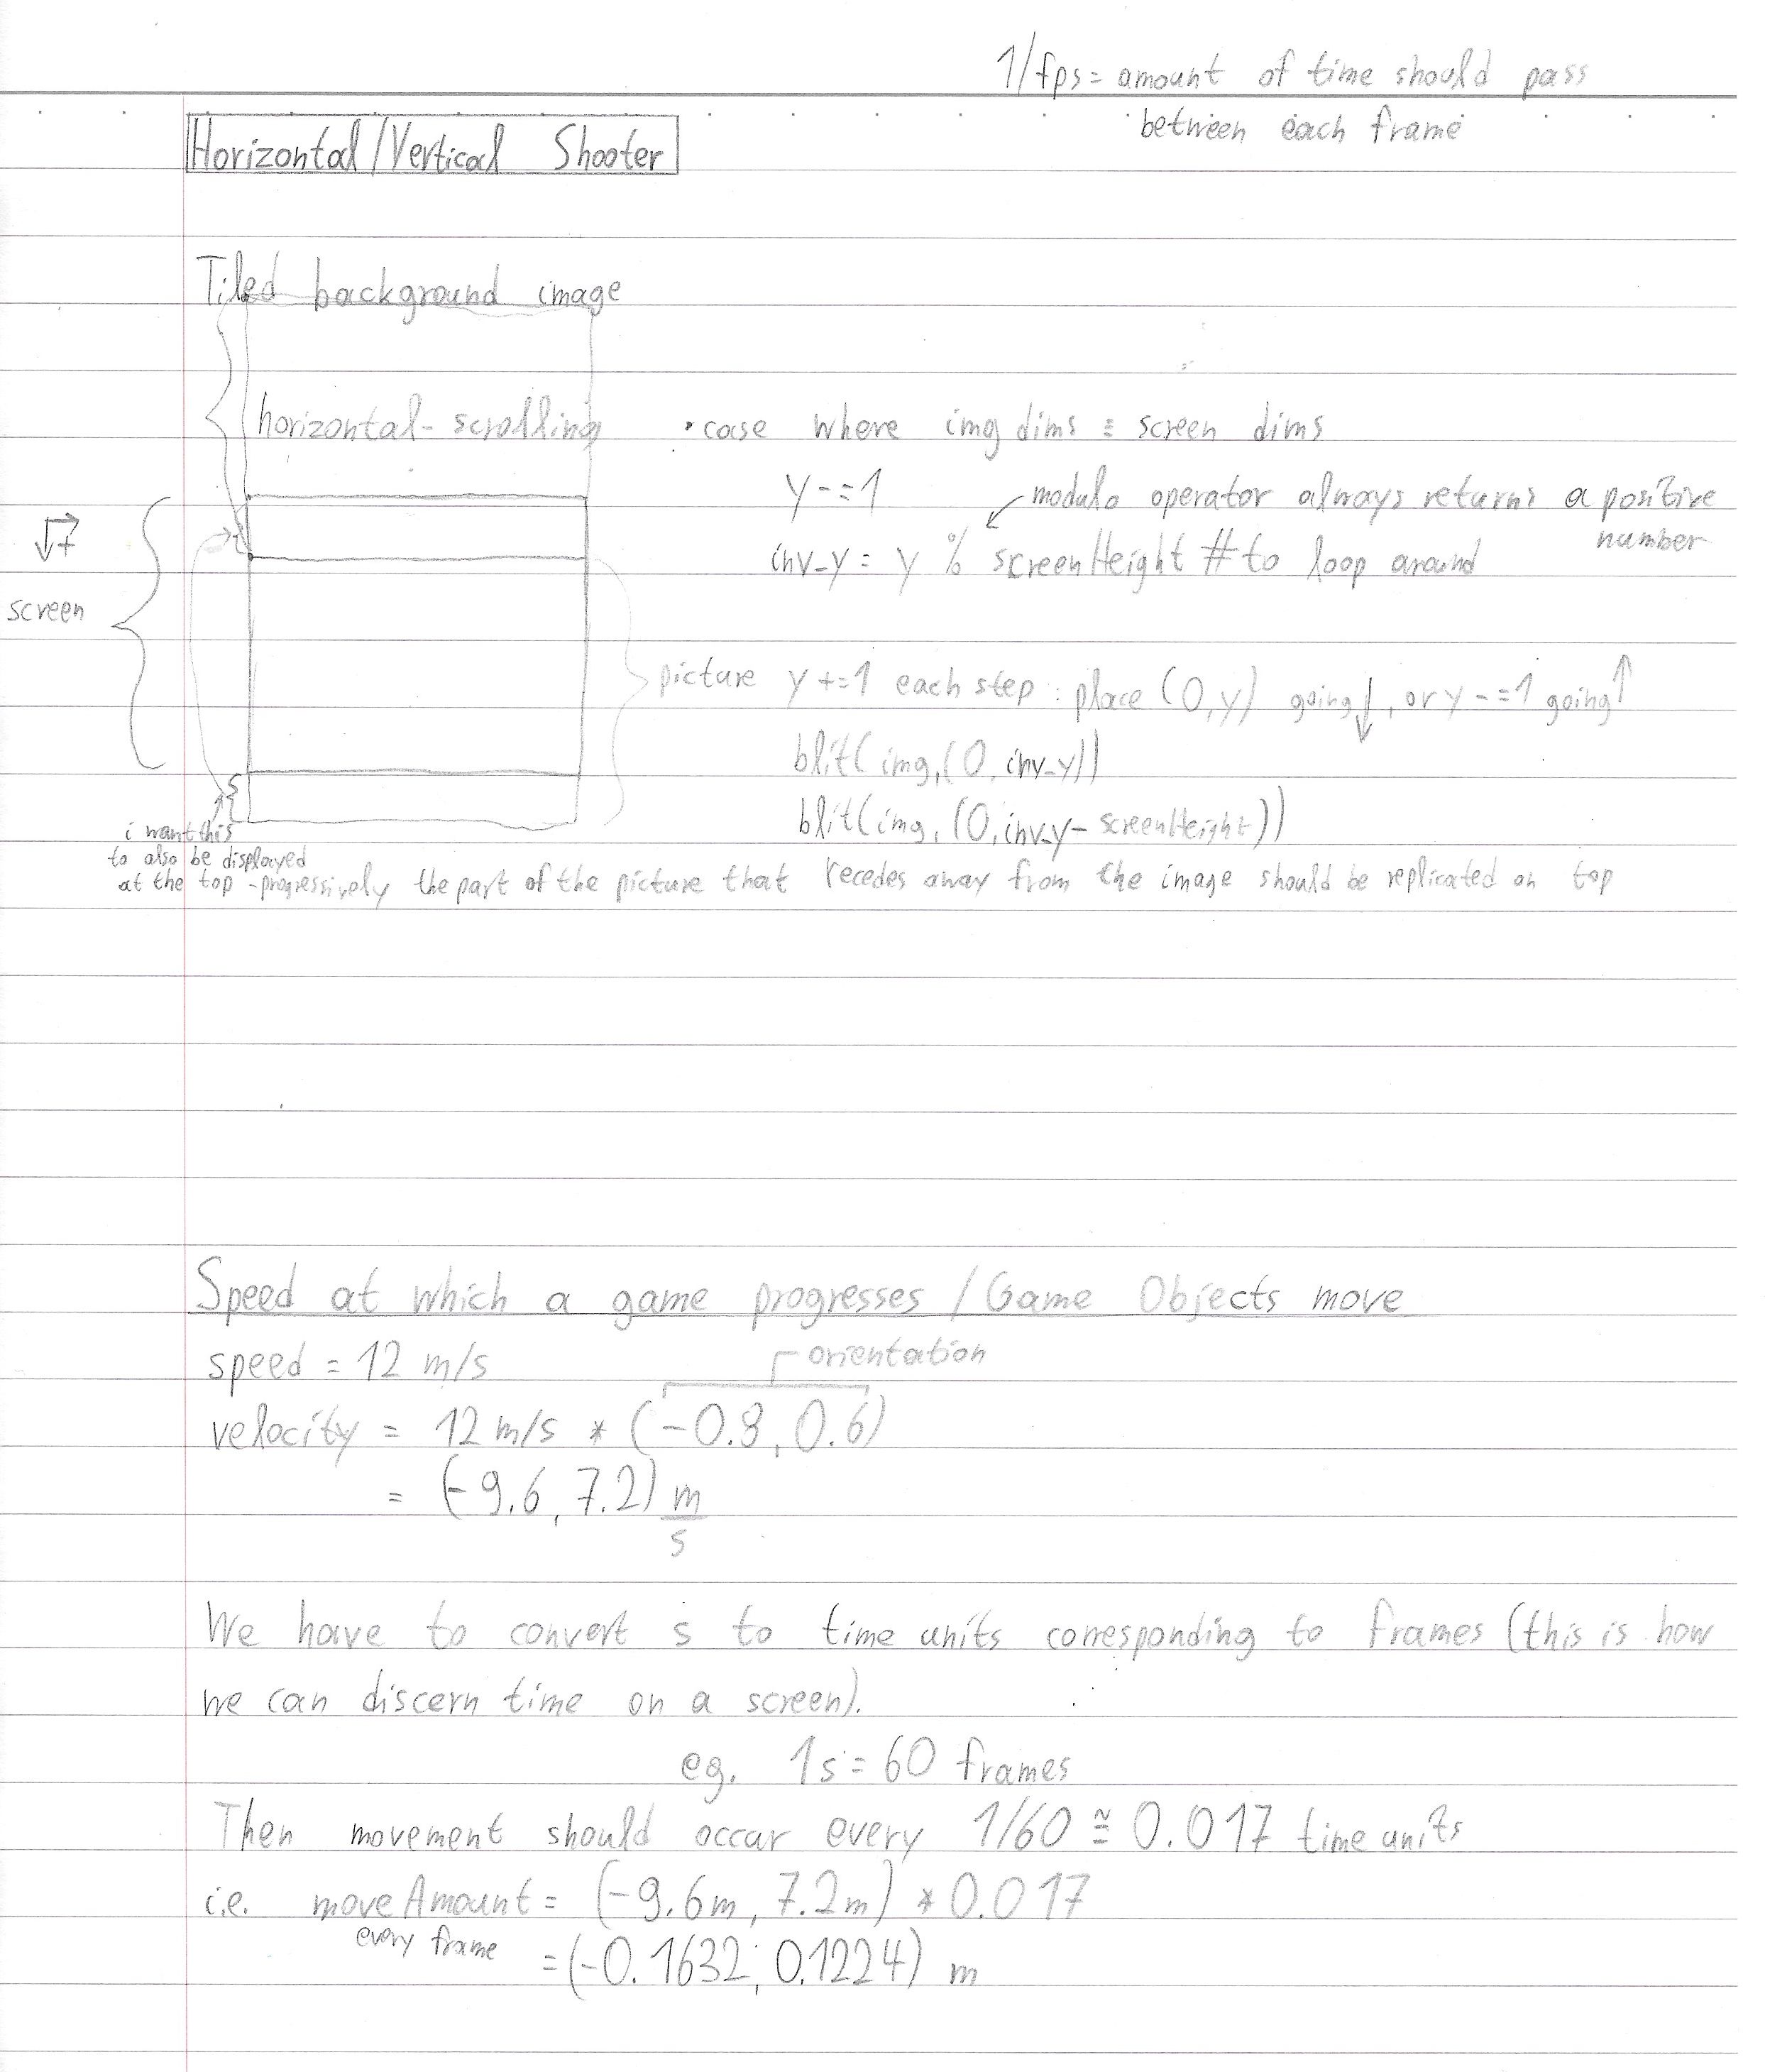 1/fps = amount of time should pass
between each frame
Horizontal/Vertical Shooter
Tiled background image
horizontal-scrolling
• case where img dims = screen dims
y -= 1
modulo operator always returns a positive
number
inv_y = y % screenHeight # to loop around
screen
picture y += 1 each step : place (0,y) going ↓, or y -= 1 going ↑
blit(img, (0, inv_y))
blit(img, (0, inv_y - screenHeight))
i want this
to also be displayed
at the top - progressively the part of the picture that recedes away from the image should be replicated on top
Speed at which a game progresses / Game Objects move
speed = 12 m/s
orientation
velocity = 12 m/s * (-0.8, 0.6)
= (-9.6, 7.2) m
s
We have to convert s to time units corresponding to frames (this is how
we can discern time on a screen).
eg. 1s = 60 frames
Then movement should occur every 1/60 ≅ 0.017 time units
i.e. moveAmount = (-9.6m, 7.2m) * 0.017
every frame
= (-0.1632, 0.1224) m